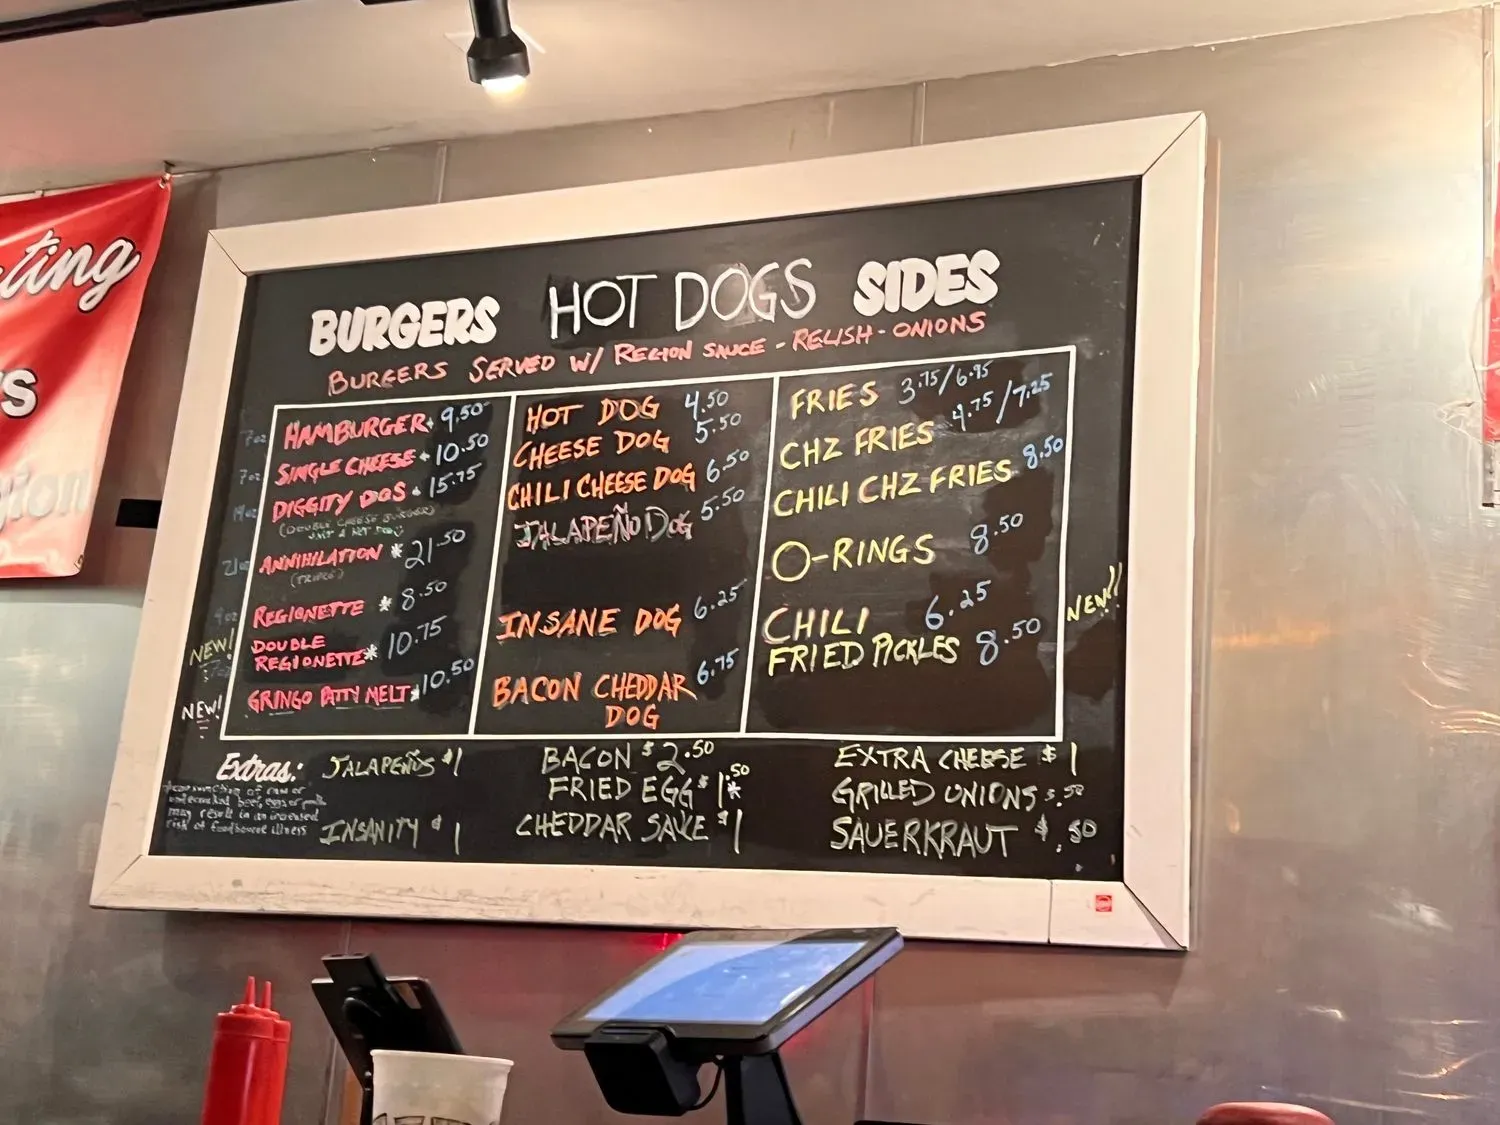 ting
s
gion
BURGERS HOT DOGS SIDES
BURGERS SERVED W/ REGION SAUCE - RELISH - ONIONS
7oz HAMBURGER* 9.50
7oz SINGLE CHEESE * 10.50
14oz DIGGITY DOS * 15.75
(DOUBLE CHEESE BURGER)
ANNIHILATION * 21.50
(TRIPLE)
REGIONETTE * 8.50
NEW! DOUBLE
REGIONETTE* 10.75
NEW! GRINGO PATTY MELT* 10.50
HOT DOG 4.50
CHEESE DOG 5.50
CHILI CHEESE DOG 6.50
JALAPEÑO DOG 5.50
INSANE DOG 6.25
BACON CHEDDAR 6.75
DOG
FRIES 3.75/6.95
CHZ FRIES 4.75/7.25
CHILI CHZ FRIES 8.50
O-RINGS 8.50
CHILI 6.25
FRIED PICKLES 8.50 NEW!!
Extras: JALAPEÑOS $1
INSANITY $1
BACON $2.50
FRIED EGG $1.50*
CHEDDAR SAUCE $1
EXTRA CHEESE $1
GRILLED ONIONS $.50
SAUERKRAUT $.50
*consumption of raw or
undercooked beef, eggs or pork
may result in an increased
risk of foodbourne illness